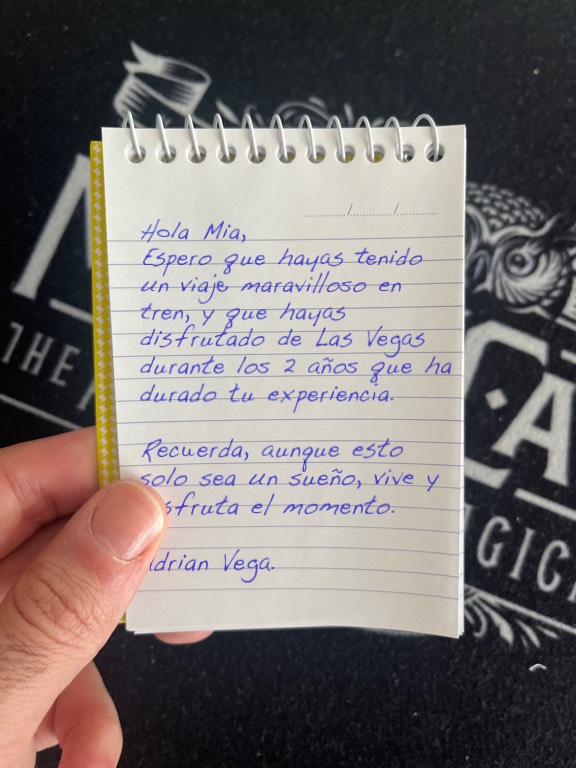 Hola Mia,
Espero que hayas tenido
un viaje maravilloso en
tren, y que hayas
disfrutado de Las Vegas
durante los 2 años que ha
durado tu experiencia.
Recuerda, aunque esto
solo sea un sueño, vive y
sfruta el momento.
drian Vega.
THE
CA
GIC